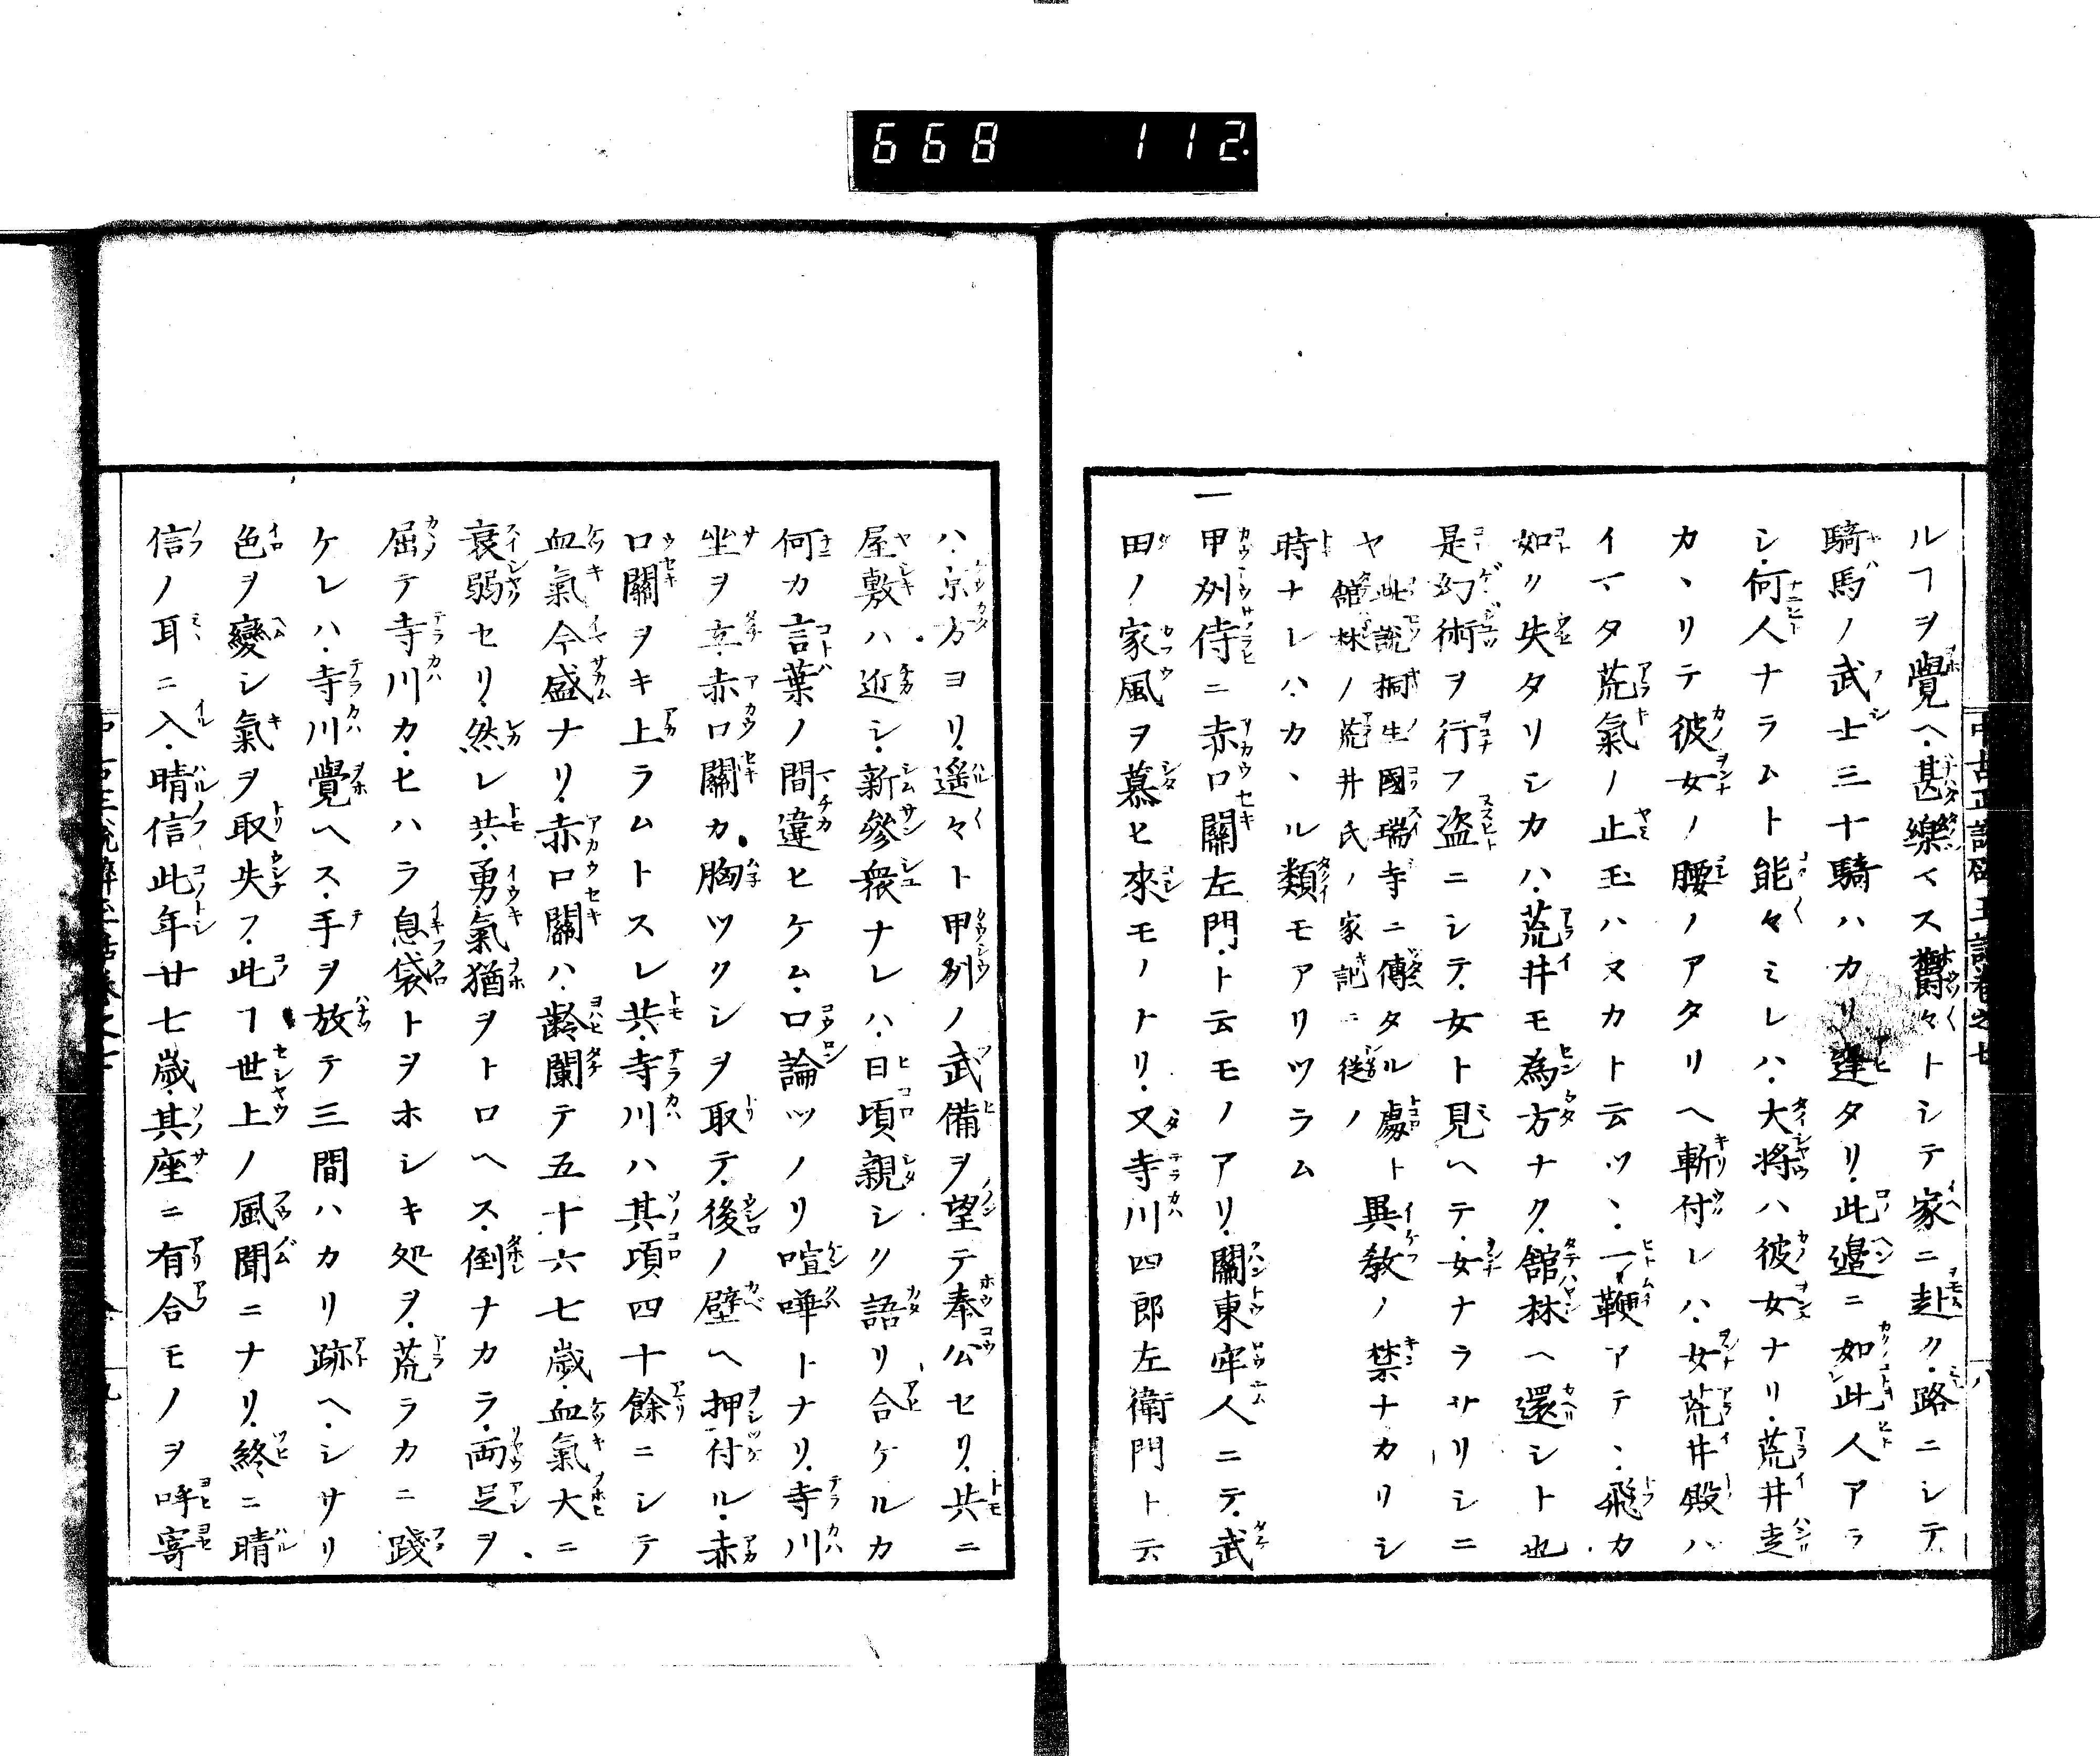 668 112.
ルヿヲ覺ヘ甚樂マス欝々トシテ家ニ赴ク路ニシテ
騎馬ノ武士三十騎ハカリ逢タリ此邉ニ如此人アラ
シ何人ナラムト能々ミレハ大将ハ彼女ナリ荒井走
カヽリテ彼女ノ腰ノアタリヘ斬付レハ女荒井殿ハ
イマタ荒氣ノ止玉ハヌカト云ツヽ一鞭アテヽ飛カ
如ク失タリシカハ荒井モ為方ナク舘林ヘ還シト也
是幻術ヲ行フ盗ニシテ女ト見ヘテ女ナラサリシニ
ヤ
此説桐生國瑞寺ニ傳タル處ト
館林ノ荒井氏ノ家記ニ從ノ
異教ノ禁ナカリシ
時ナレハカヽル類モアリツラム
一甲州侍ニ赤口關左門ト云モノアリ關東牢人ニテ武
田ノ家風ヲ慕ヒ來モノトリ又寺川四郎左衛門ト云
ハ京方ヨリ遥々ト甲州ノ武備ヲ望テ奉公セリ共ニ
屋敷ハ近シ新參衆ナレハ日頃親シク語リ合ケルカ
何カ言葉ノ間違ヒケム口論ツノリ喧嘩トナリ寺川
坐ヲ立赤口關カ胸ツクシヲ取テ後ノ壁ヘ押付ル赤
口關ヲキ上ラムトスレ共寺川ハ其頃四十餘ニシテ
血氣今盛ナリ赤口關ハ齢闌テ五十六七歳血氣大ニ
衰弱セリ然レ共勇氣猶ヲトロヘス倒ナカラ両足ヲ
屈テ寺川カヒハラ息袋トヲホシキ処ヲ荒ラカニ踐
ケレハ寺川覺ヘス手ヲ放テ三間ハカリ跡ヘシサリ
色ヲ變シ氣ヲ取失フ此ヿ世上ノ風聞ニナリ終ニ晴
信ノ耳ニ入晴信此年廿七歳其座ニ有合モノヲ呼寄